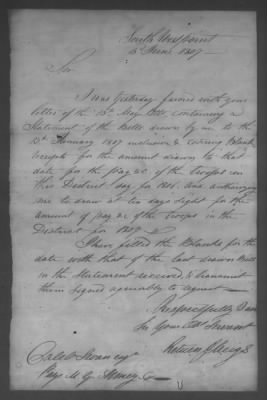 South West Point
5 June 1807
Sir
I was yesterday favored with your
letter of the 15th May Ult. containing a
Statement of the Bills drawn by me to the
13th January 1807 inclusive & covering Blank
receipts for the amount drawn to that
date for the pay &c of the troops in
this District day for 1806. And authorizing
me to draw at ten days sight for the
amount of pay &c of the troops in the
District for 1807
I have filled the Blanks for the
date with that of the last drawn Bill
in the Statement received, & transmit
them signed agreeably to request
Respectfully I am
Sir Your Obt Servant
Return J. Meigs
Caleb Swan esqr
Pay M. G.